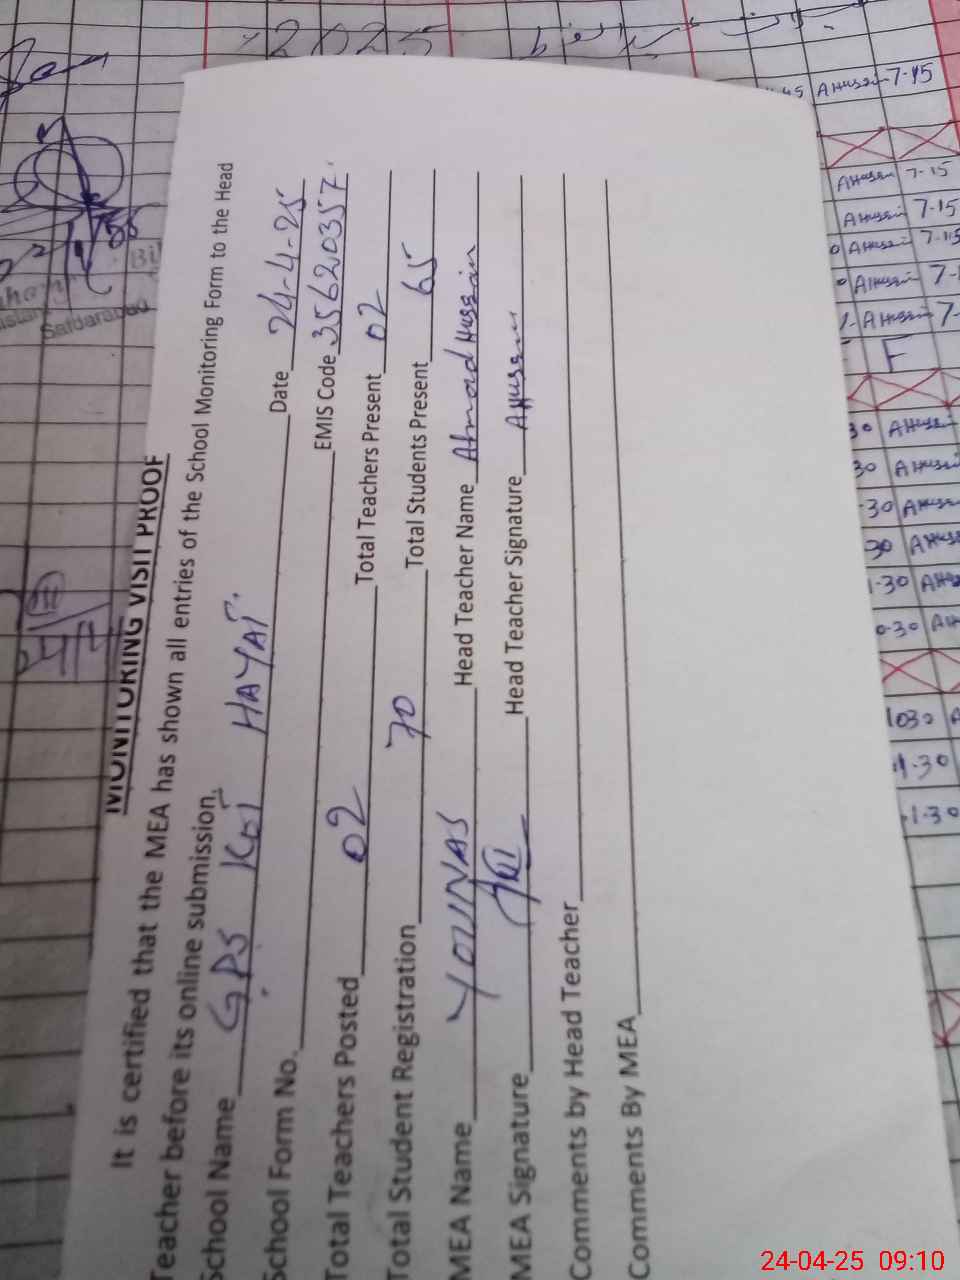 MONITORING VISIT PROOF
It is certified that the MEA has shown all entries of the School Monitoring Form to the Head
Teacher before its online submission.
School Name GPS KOT HAYAT. Date 24-4-25
School Form No. EMIS Code 35620357
Total Teachers Posted 02 Total Teachers Present 02
Total Student Registration 70 Total Students Present 65
MEA Name YOUNAS Head Teacher Name Ahmad Hussain
MEA Signature Head Teacher Signature AHussain
Comments by Head Teacher
Comments By MEA
2025
Safdarabad
AHussain 7-15
AHussain 7-15
AHussain 7-15
AHussain 7-15
AHussain 7-
AHussain 7-
F
30 AHussain
30 AHussain
-30 AHussain
30
1-30
0-30
1030 A
1-30
1-30
24-04-25 09:10